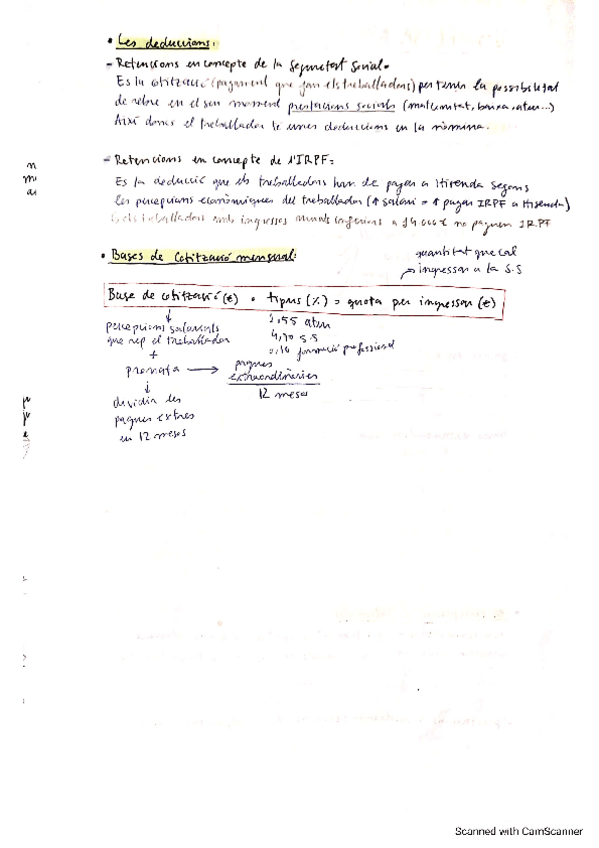 • Les deduccions:
- Retencions en concepte de la Seguretat Social.
Es la cotització (pagament que fan els treballadors) per tenir la possibilitat
de rebre en el seu moment prestacions socials (maternitat, baixa, atur...)
Així doncs el treballador té unes deduccions en la nòmina.
- Retencions en concepte de l'IRPF:
Es la deducció que els treballadors han de pagar a Hisenda segons
les percepcions econòmiques del treballador (↑ salari = ↑ pagar IRPF a Hisenda)
Els treballadors amb ingressos anuals inferiors a 14 000€ no paguen IRPF
• Bases de cotització mensual:
quantitat que cal
ingressar a la S.S
Base de cotització (€) • tipus (%) = quota per ingressar (€)
percepcions salarials
que rep el treballador
+
prorrata → pagues
extraordinàries
12 mesos
1,55 atur
4,70 S.S
0,10 formació professional
dividir les
pagues extres
en 12 mesos
Scanned with CamScanner